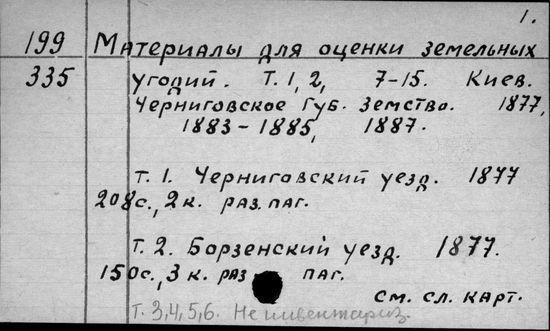 1.
199 Материалы для оценки земельных
335 угодий. Т. 1, 2, 7-15. Киев.
Черниговское Губ. Земство. 1877,
1883-1885, 1887.
Т. 1. Черниговский уезд. 1877
208с., 2 к. раз. паг.
Т. 2. Борзенский уезд. 1877.
150с., 3 к. раз паг.
см. сл. карт.
Т. 3,4,5,6. Не инвентариз.